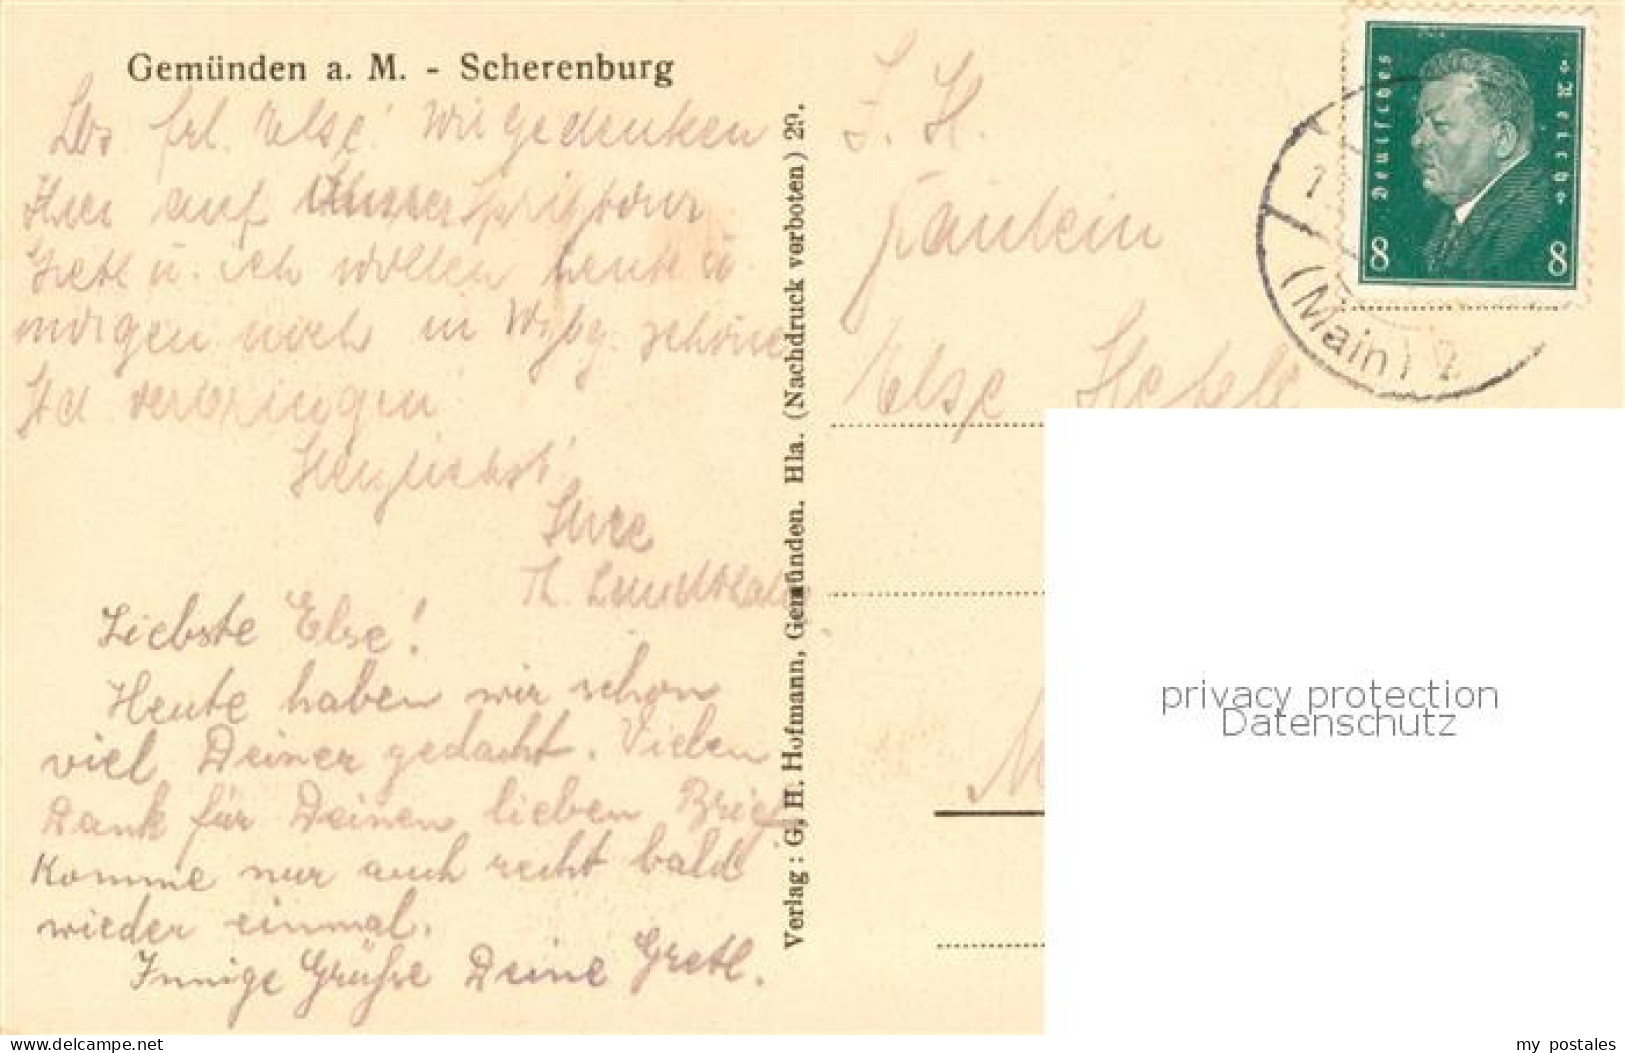 Gemünden a. M. - Scherenburg
Lbs. Frl. Else! Wir gedenken
Ihrer auf unserer Spritztour
Gretl u. ich wollen heute u.
morgen noch in Wzbg. schöne
Std verbringen
Herzlichst!
Ihre
Th.
Liebste Else!
Heute haben wir schon
viel Deiner gedacht. Vielen
Dank für Deinen lieben Brief
Komme nur auch recht bald
wieder einmal.
Innige Grüße Deine Gretl.
Verlag: G. H. Hofmann, Gemünden. Hla. (Nachdruck verboten) 29.
Fräulein
Else
M
Deutsches Reich
8 8
(Main) 2
privacy protection
Datenschutz
delcampe.net
my_postales